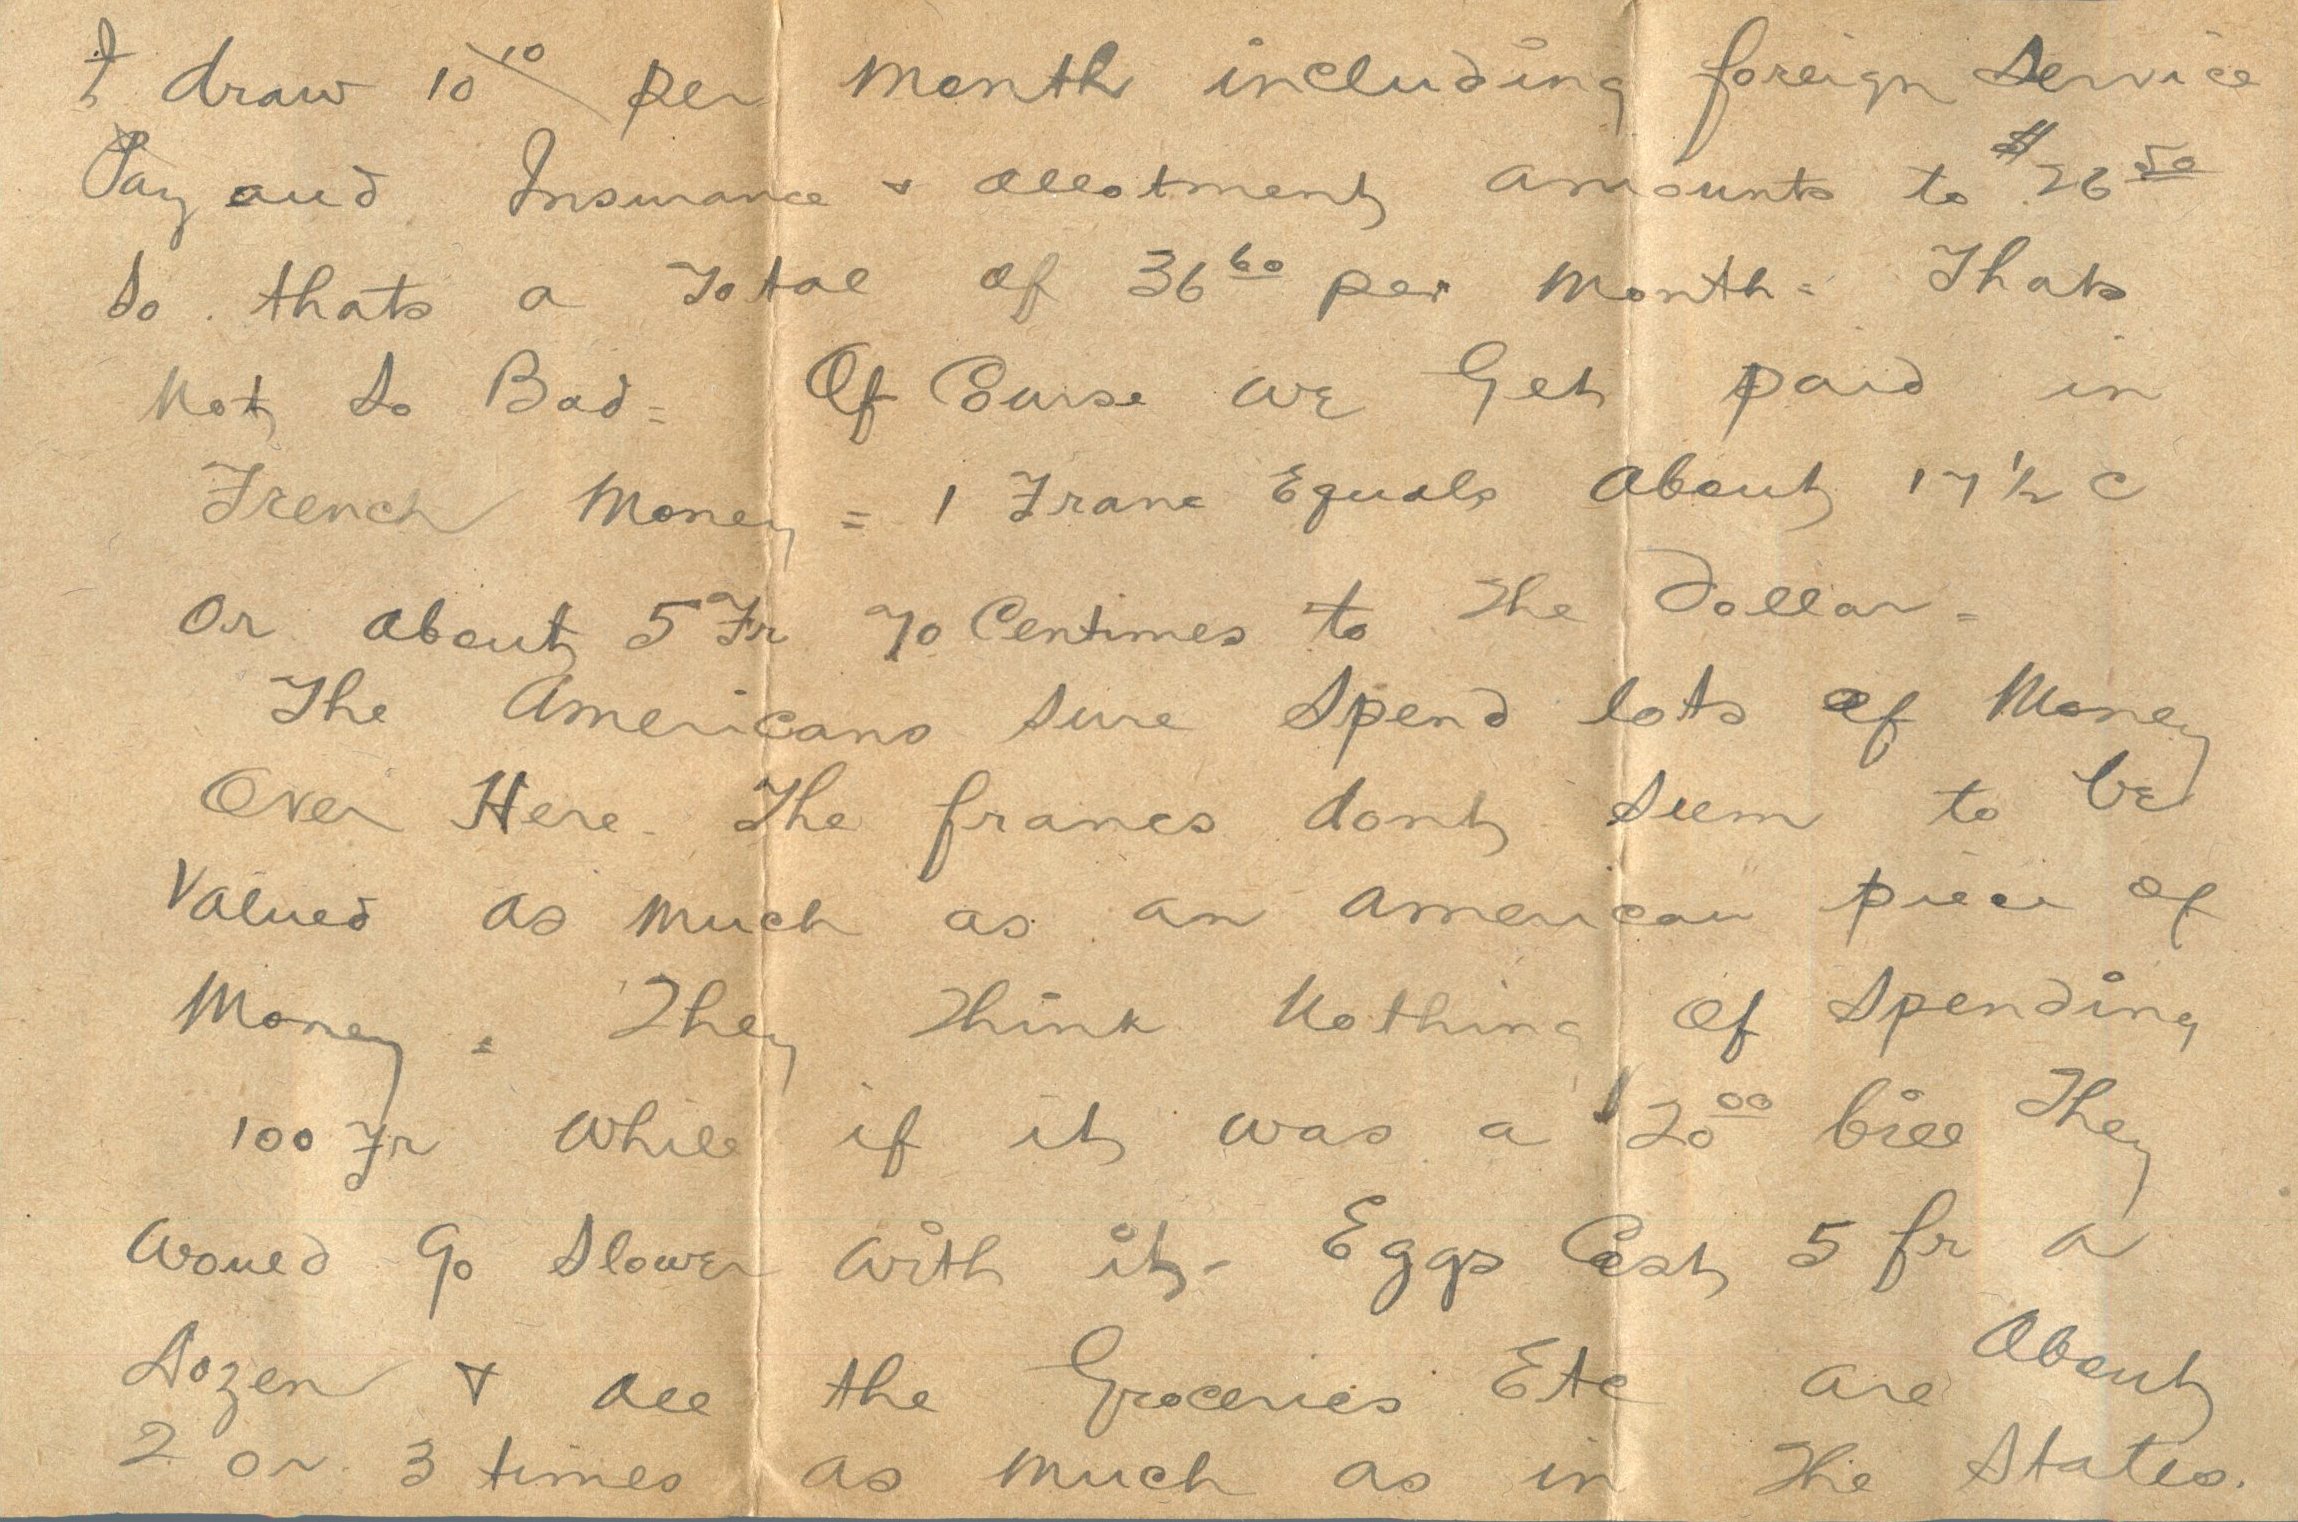 I draw 10 10/ per month including foreign Service
Pay and Insurance & allotment amounts to $26 50
So thats a Total of 36 60 per Month = Thats
Not So Bad = Of Course we Get paid in
French Money = 1 Franc Equals About 17 1/2 c
Or about 5 Fr 70 Centimes to The Dollar =
The Americans sure Spend lots of Money
Over Here. The francs dont seem to be
Valued as Much as an American piece of
Money = They Think Nothing Of Spending
100 Fr While if it was a $20 00 bill They
Would Go Slower with it - Eggs Cost 5 fr a
Dozen & all the Groceries Etc are About
2 or 3 times as Much as in The States.